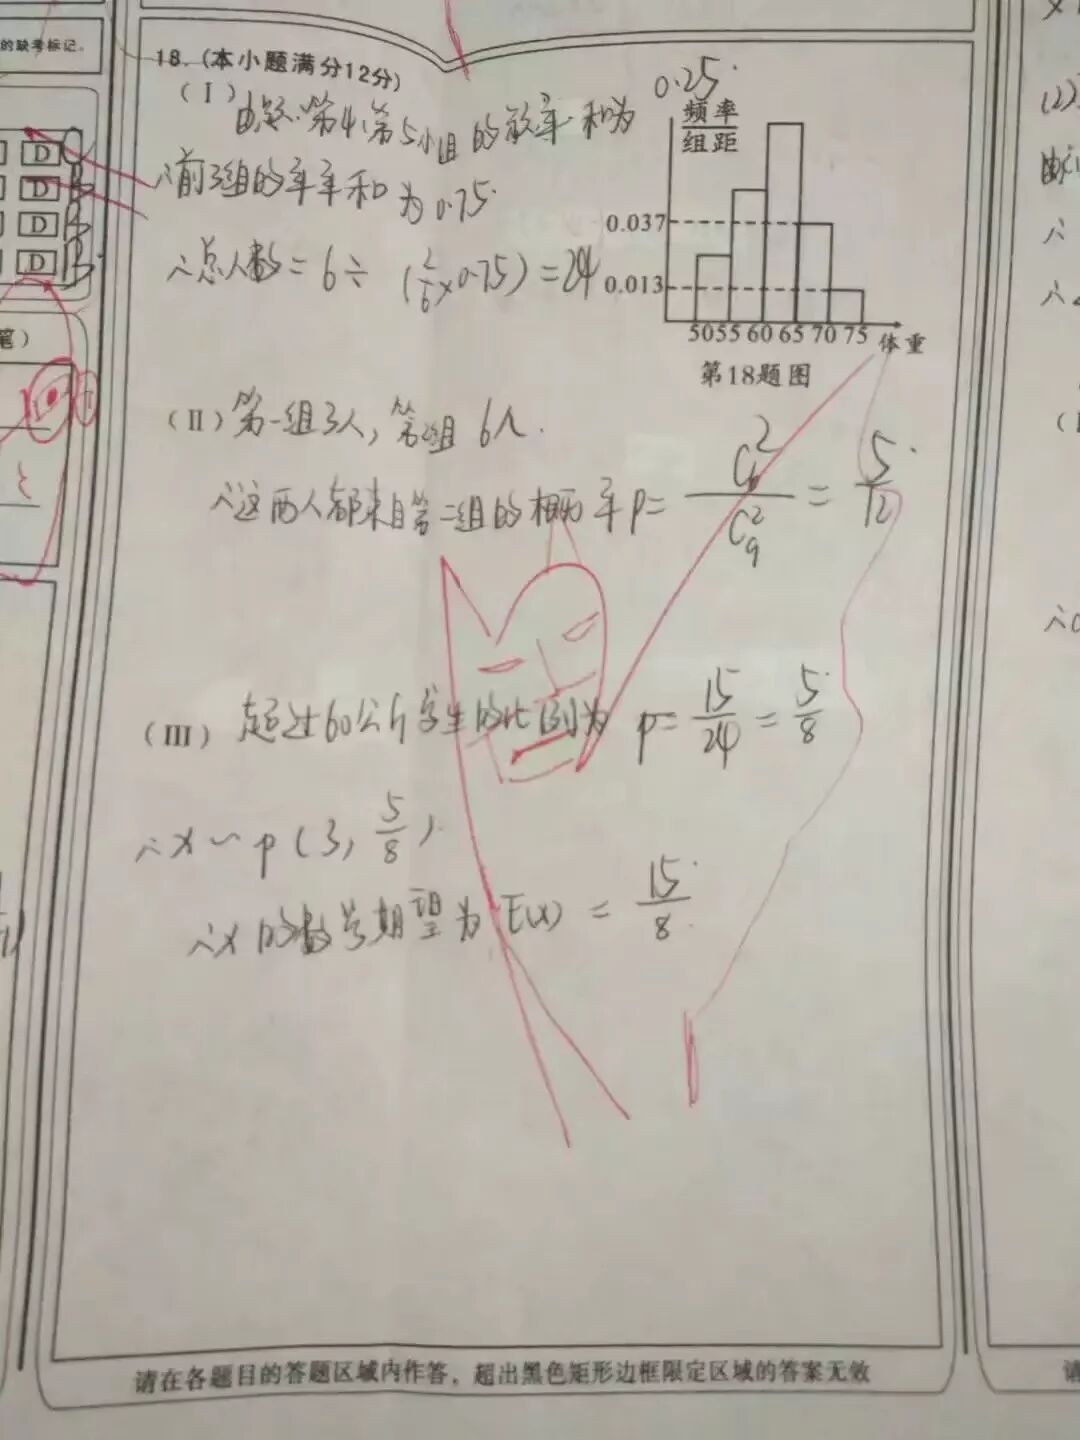 的缺考标记。
18.(本小题满分12分)
(Ⅰ)
由题:第4,第5小组的频率和为0.25.
∴前3组的频率和为0.75.
∴总人数=6÷(2/6×0.75)=24
频率
组距
0.037
0.013
50 55 60 65 70 75 体重
第18题图
(Ⅱ)第一组3人,第二组6人.
∴这两人都来自第二组的概率P=C₆²/C₉²=5/12.
(Ⅲ)超过60公斤学生的比例为 P=15/24=5/8
∴x~P(3,5/8).
∴x的数学期望为E(x)=15/8.
请在各题目的答题区域内作答,超出黑色矩形边框限定区域的答案无效
D
D
D
D
笔)
(2)